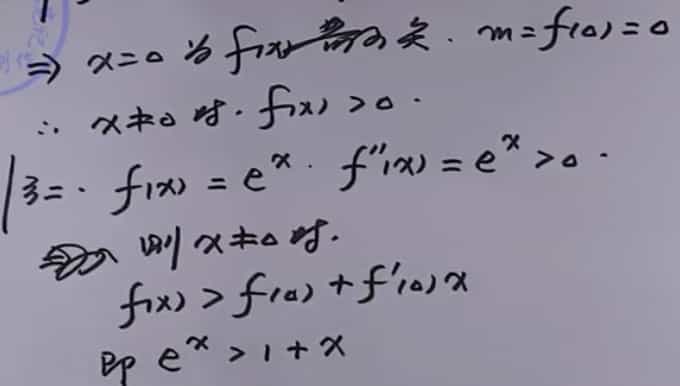 ⇒ x=0 为 f(x) 的 点. m=f(0)=0
∴ x≠0 时. f(x)>0.
法二. f(x)=e^x. f''(x)=e^x>0.
则 x≠0 时.
f(x)>f(0)+f'(0)x
即 e^x>1+x